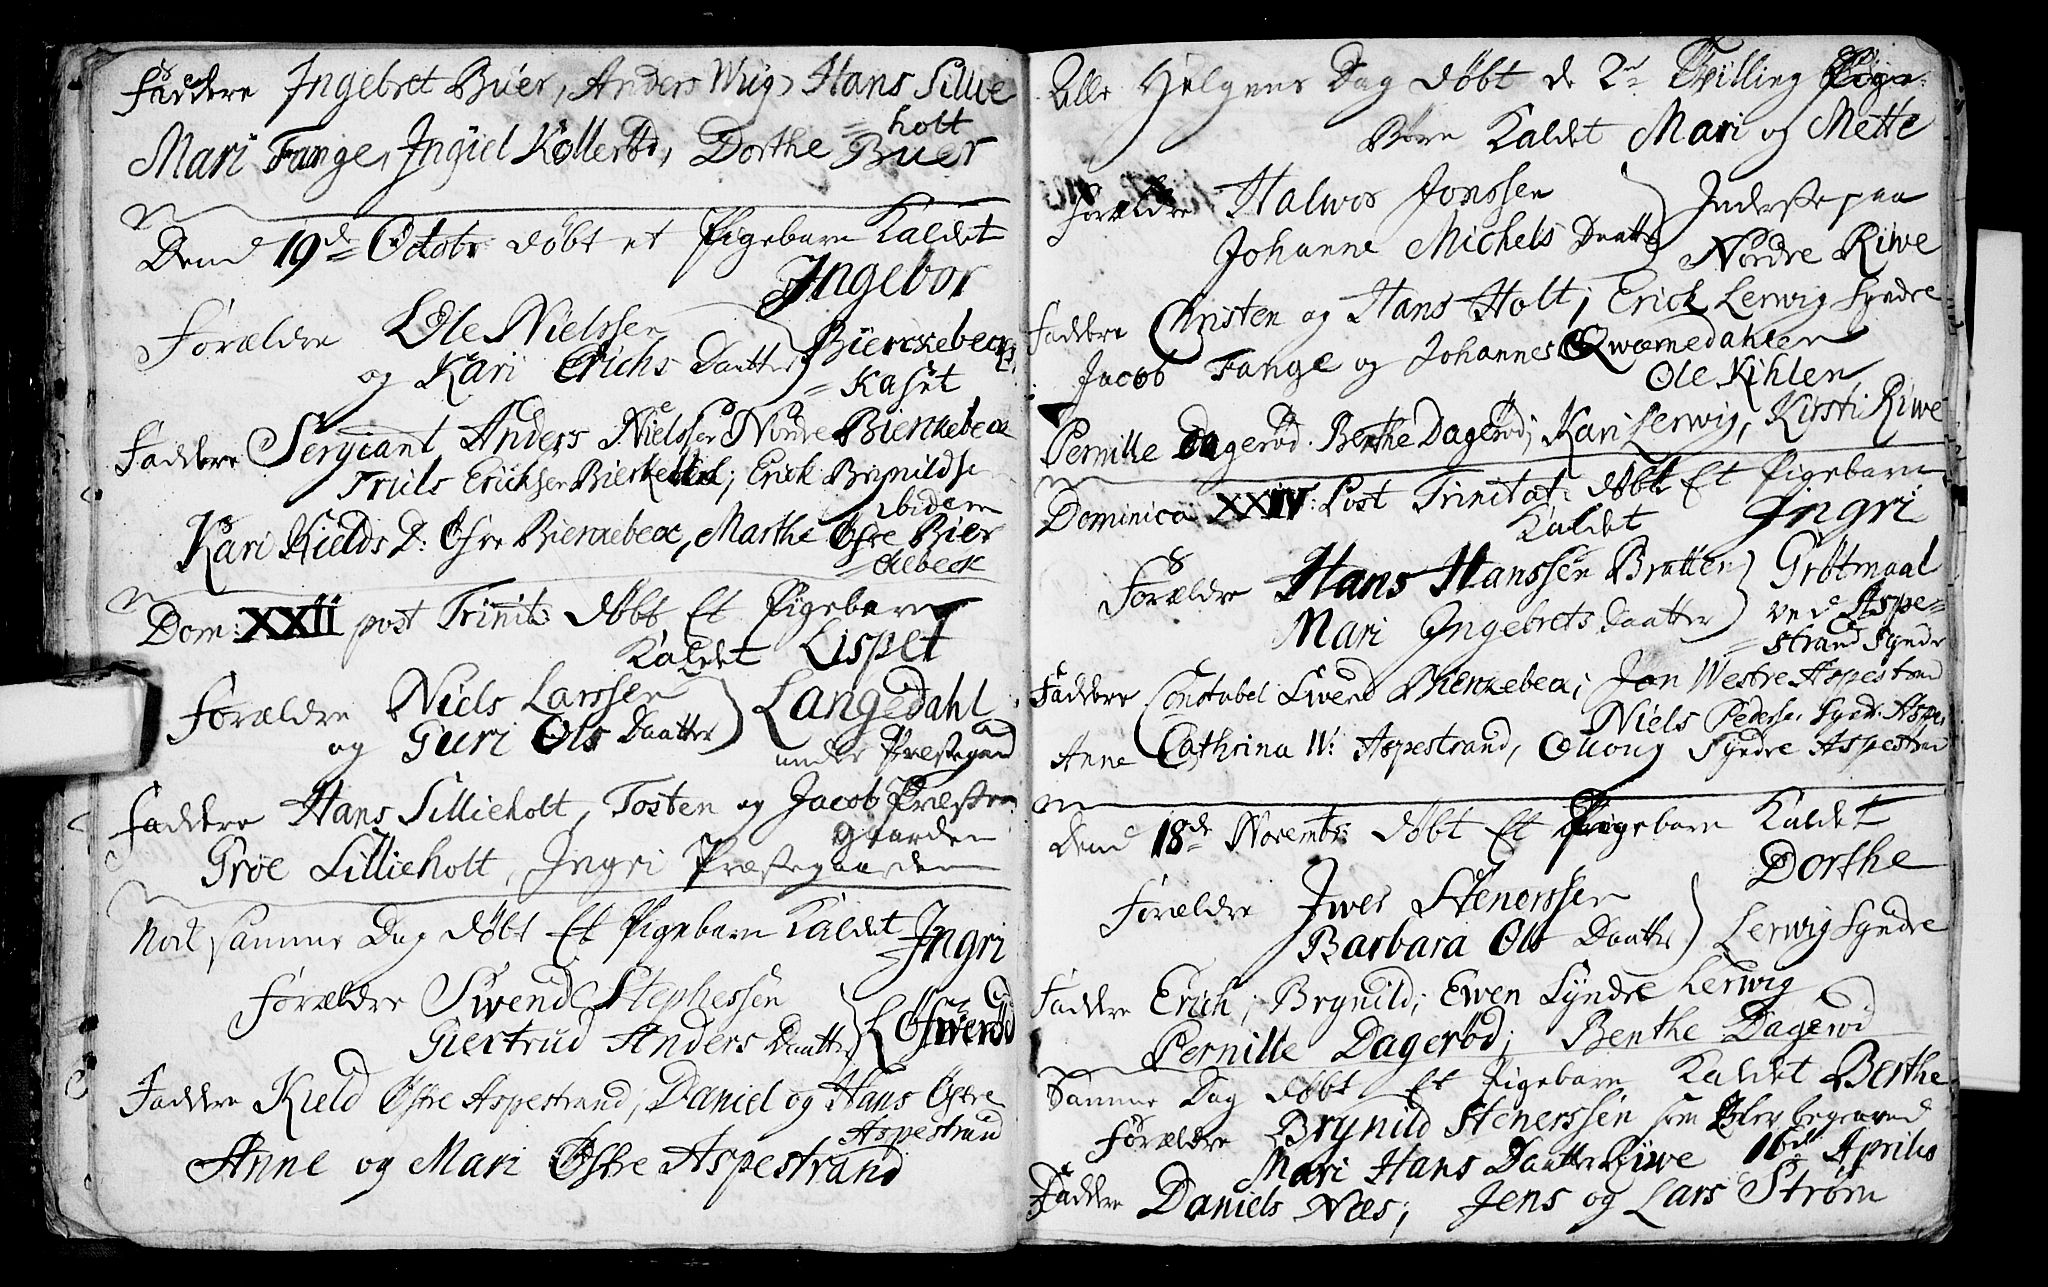 Faddere Ingebret Büer, Anders Wiig, Hans Sillie
=holt
Mari Fange, Ingiel Kollerød, Dorthe Buer
Dend 19de Octobr: døbt et Pigebarn Kaldet
Ingebor
Forældre Ole Nielssen
og Kari Erichs Daatter Bierckebeck
=Kaset
Faddere Sergiant Anders Nielssen Nordre Bierckebeck
Truls Ericksen Bierkebek; Erick Brynildse
ibidem
Kari Kields D: Østre Bierckebeck, Marthe Østre Bier
=ckebeck
Dom: XXII post Trinit: døbt Et Pigebarn
Kaldet Lispet
Forældre Niels Larssen Langedahl
og Guri Ols Daatter under Præstegaad
Faddere Hans Sillieholt, Tosten og Jacob Præste
gaarden
Groe Sillieholt, Ingri Præstegaarden
Nock samme Dag døbt Et Pigebarn Kaldet Ingri
Forældre Swend Stephessen
Giertrud Anders Daatter
Faddere Kield Østre Aspestrand, Daniel og Hans Østre
Aspestrand
Anne og Mari Østre Aspestrand
Alle Helgens Dag døbt de 2de Tvilling Pige
Børn Kaldet Mari og Mette
Forældre Halwor Jonssen Inderste paa
Johanne Michels Daatter Nordre Riwe
Faddere Christen og Hans Holt; Erick Lerwig Syndre
Jacob Fange og Johannes Qwærnedahlen
Ole Kihlen
Pernille Dagerød. Berthe Dagerød; Kari Lerwig, Kirsti Riwe
Dominica XXIV: Post Trinitat: døbt Et Pigebarn
Kaldet Ingri
Forældre Hans Hanssen Bratten Grøtmaal
Mari Ingebrets Daatter ved Aspe=
=strand Syndr
Faddere Constabel Swend Bierckebeck; Jon Westre Aspestrand
Niels Pederse. Synd: Aspe.
Anne Cathrina W: Aspestrand, OLoug Syndre Aspestrand
Dend 18de Novembr: døbt Et Pigebarn Kaldet
Dorthe
Forældre Iwer Stenerssen
Barbara Ols Daatter Lerwig Syndre
Faddere Erich; Brynild; Ewen Syndre Lerwig
Pernille Dagerød; Benthe Dagerød
Samme Dag døbt Et Pigebarn Kaldet Berthe
Forældre Brynild Stenerssen som blev begraved
Mari Hans Daatter Riwe 16de Aprilis
Faddere Daniels Næs; Jens og Lars Strøm